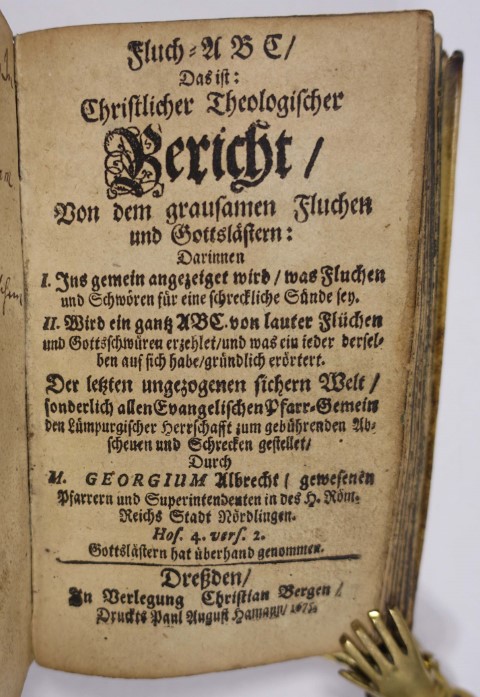 Fluch-A B C/
Das ist:
Christlicher Theologischer
Bericht/
Von dem grausamen Fluchen
und Gottslästern:
Darinnen
I. Ins gemein angezeiget wird/ was Fluchen
und Schwören für eine schreckliche Sünde sey.
II. Wird ein gantz ABC. von lauter Flüchen
und Gottsschwüren erzehlet/ und was ein ieder dersel-
ben auf sich habe/ gründlich erörtert.
Der letzten ungezogenen sichern Welt/
sonderlich allen Evangelischen Pfarr-Gemein
den Limpurgischer Herrschafft zum gebührenden Ab-
scheuen und Schrecken gestellet/
Durch
M. GEORGIUM Albrecht/ gewesenen
Pfarrern und Superintendenten in des H. Röm.
Reichs Stadt Nördlingen.
Hos. 4. vers. 2.
Gottslästern hat überhand genommen.
Dreßden/
In Verlegung Christian Bergen/
Druckts Paul August Hamann/